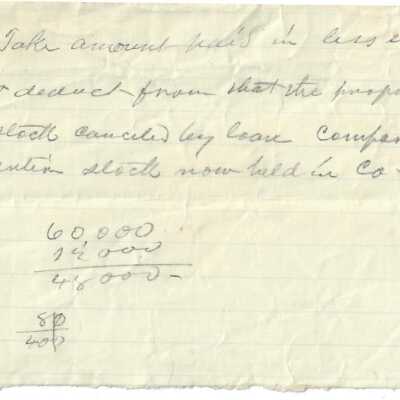 Take amount paid in less e
& deduct from that the propo
stock canceled by loan Compan
entire stock now held in Co -
60000
12000
48000 -
80
400